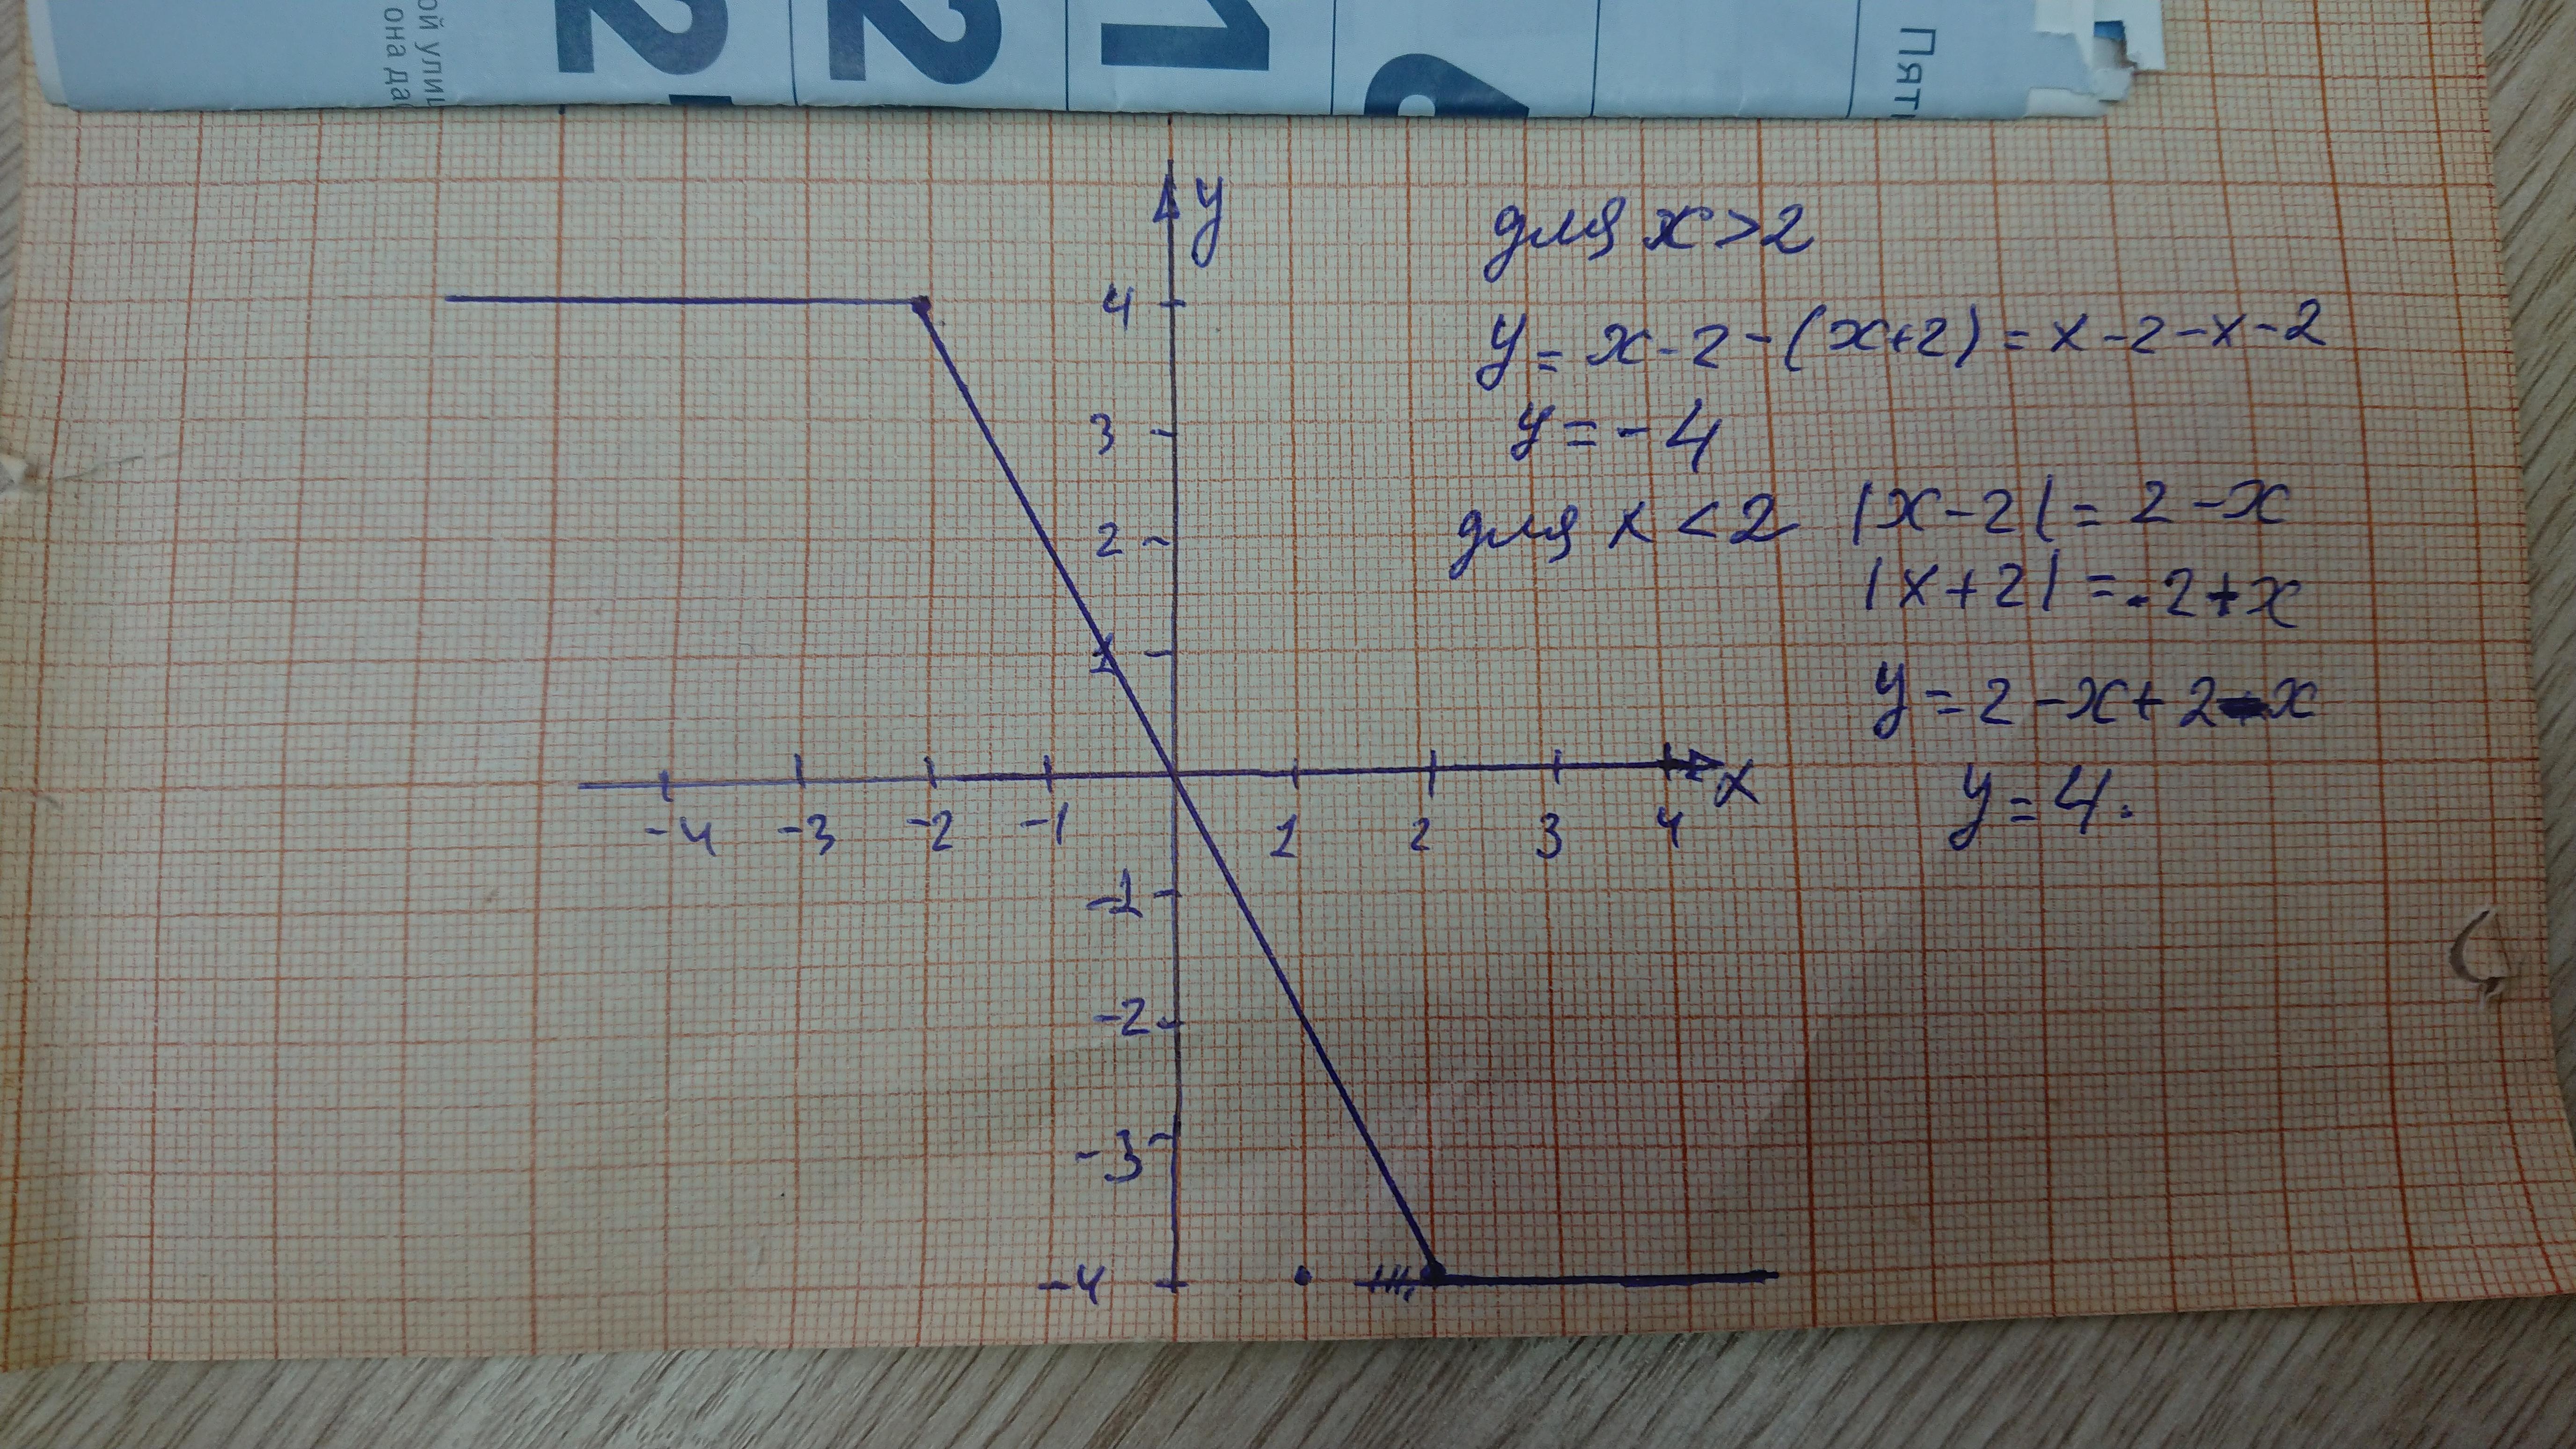 ой улиц
она да
2
2
1
6
Пятн
y
для x>2
4
y = x-2-(x+2) = x-2-x-2
3
y = -4
2
для x < 2 |x-2| = 2-x
|x+2| = -2+x
1
y = 2-x+2-x
x
y = 4.
-4 -3 -2 -1 1 2 3 4
-1
-2
-3
-4